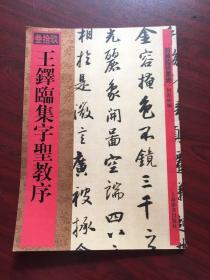 金容掩色不鏡三千之
光麗象開圖空端四八之
相於是微言廣被拯含
王鐸臨集字聖教序